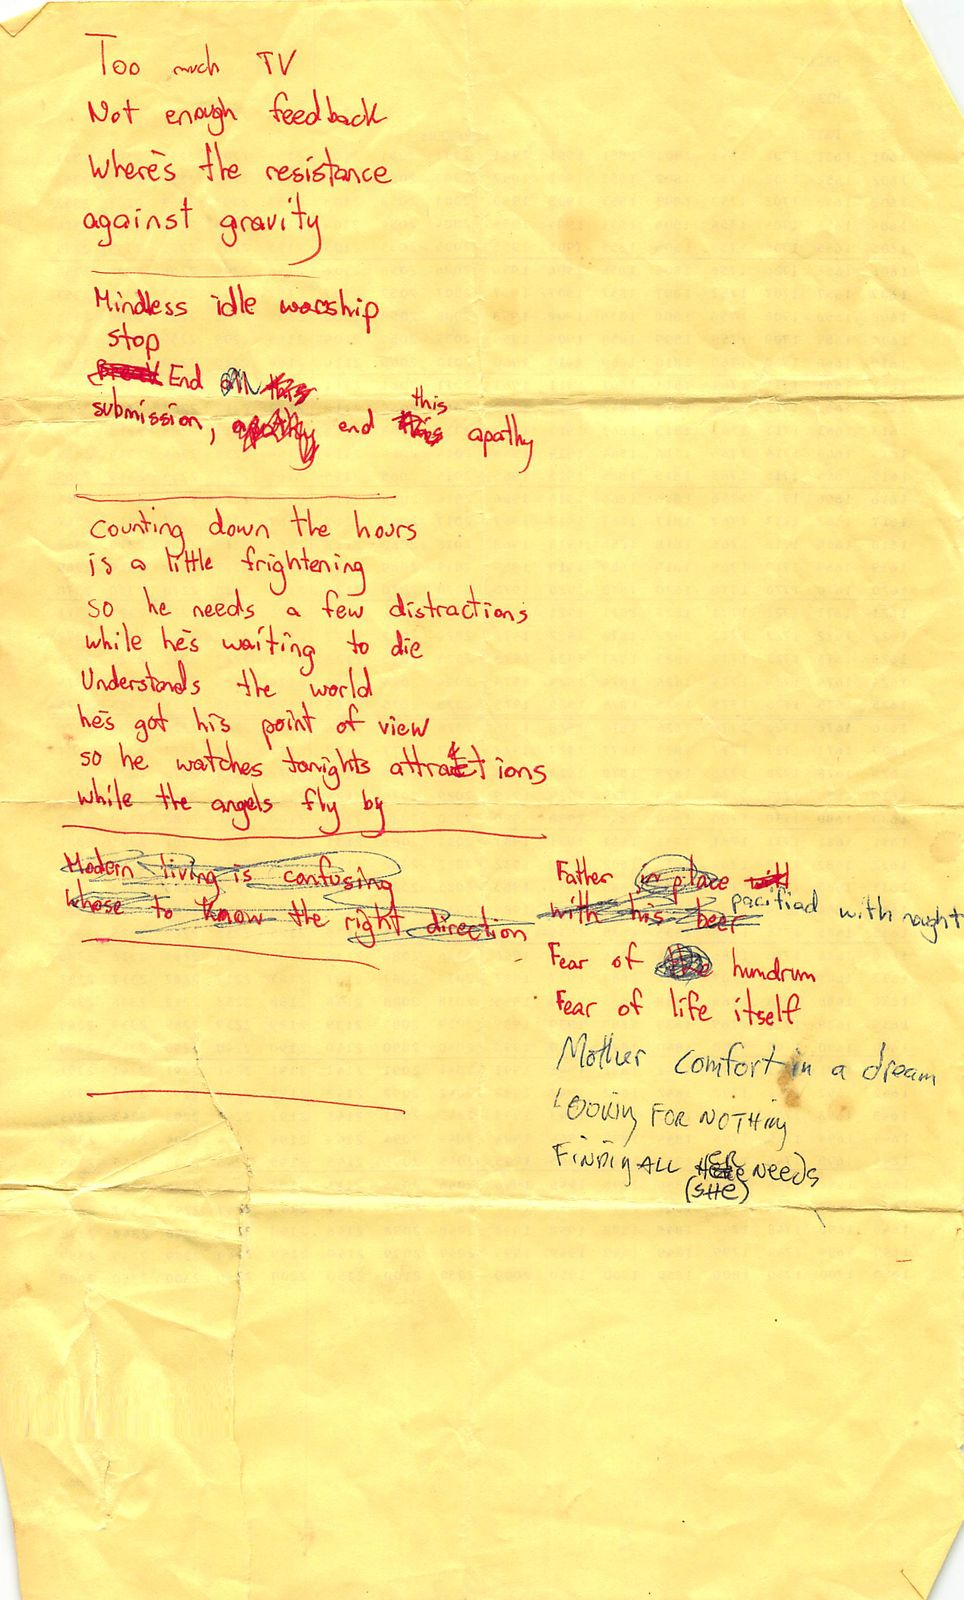 Too much TV
Not enough feedback
Where's the resistance
against gravity
Mindless idle worship
stop
Break End this
submission, apathy end this this apathy
Counting down the hours
is a little frightening
so he needs a few distractions
while he's waiting to die
Understands the world
he's got his point of view
so he watches tonights attractions
while the angels fly by
Modern living is confusing
whose to know the right direction
Father in place
with his beer pacified with nought
Fear of the humdrum
Fear of life itself
Mother comfort in a dream
LOOKING FOR NOTHING
FINDING ALL HER NEEDS
(SHE)